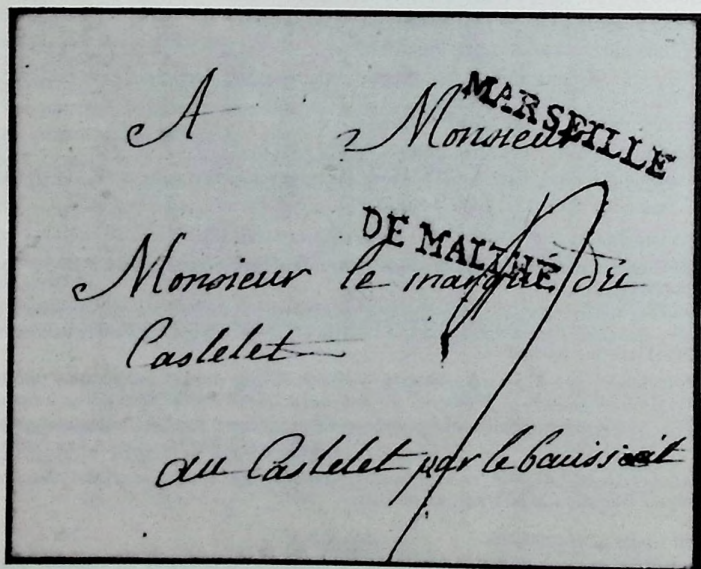 A Monsieur
MARSEILLE
DE MALTHE
Monsieur le marquis du
Castelet
au Castelet par le Causset